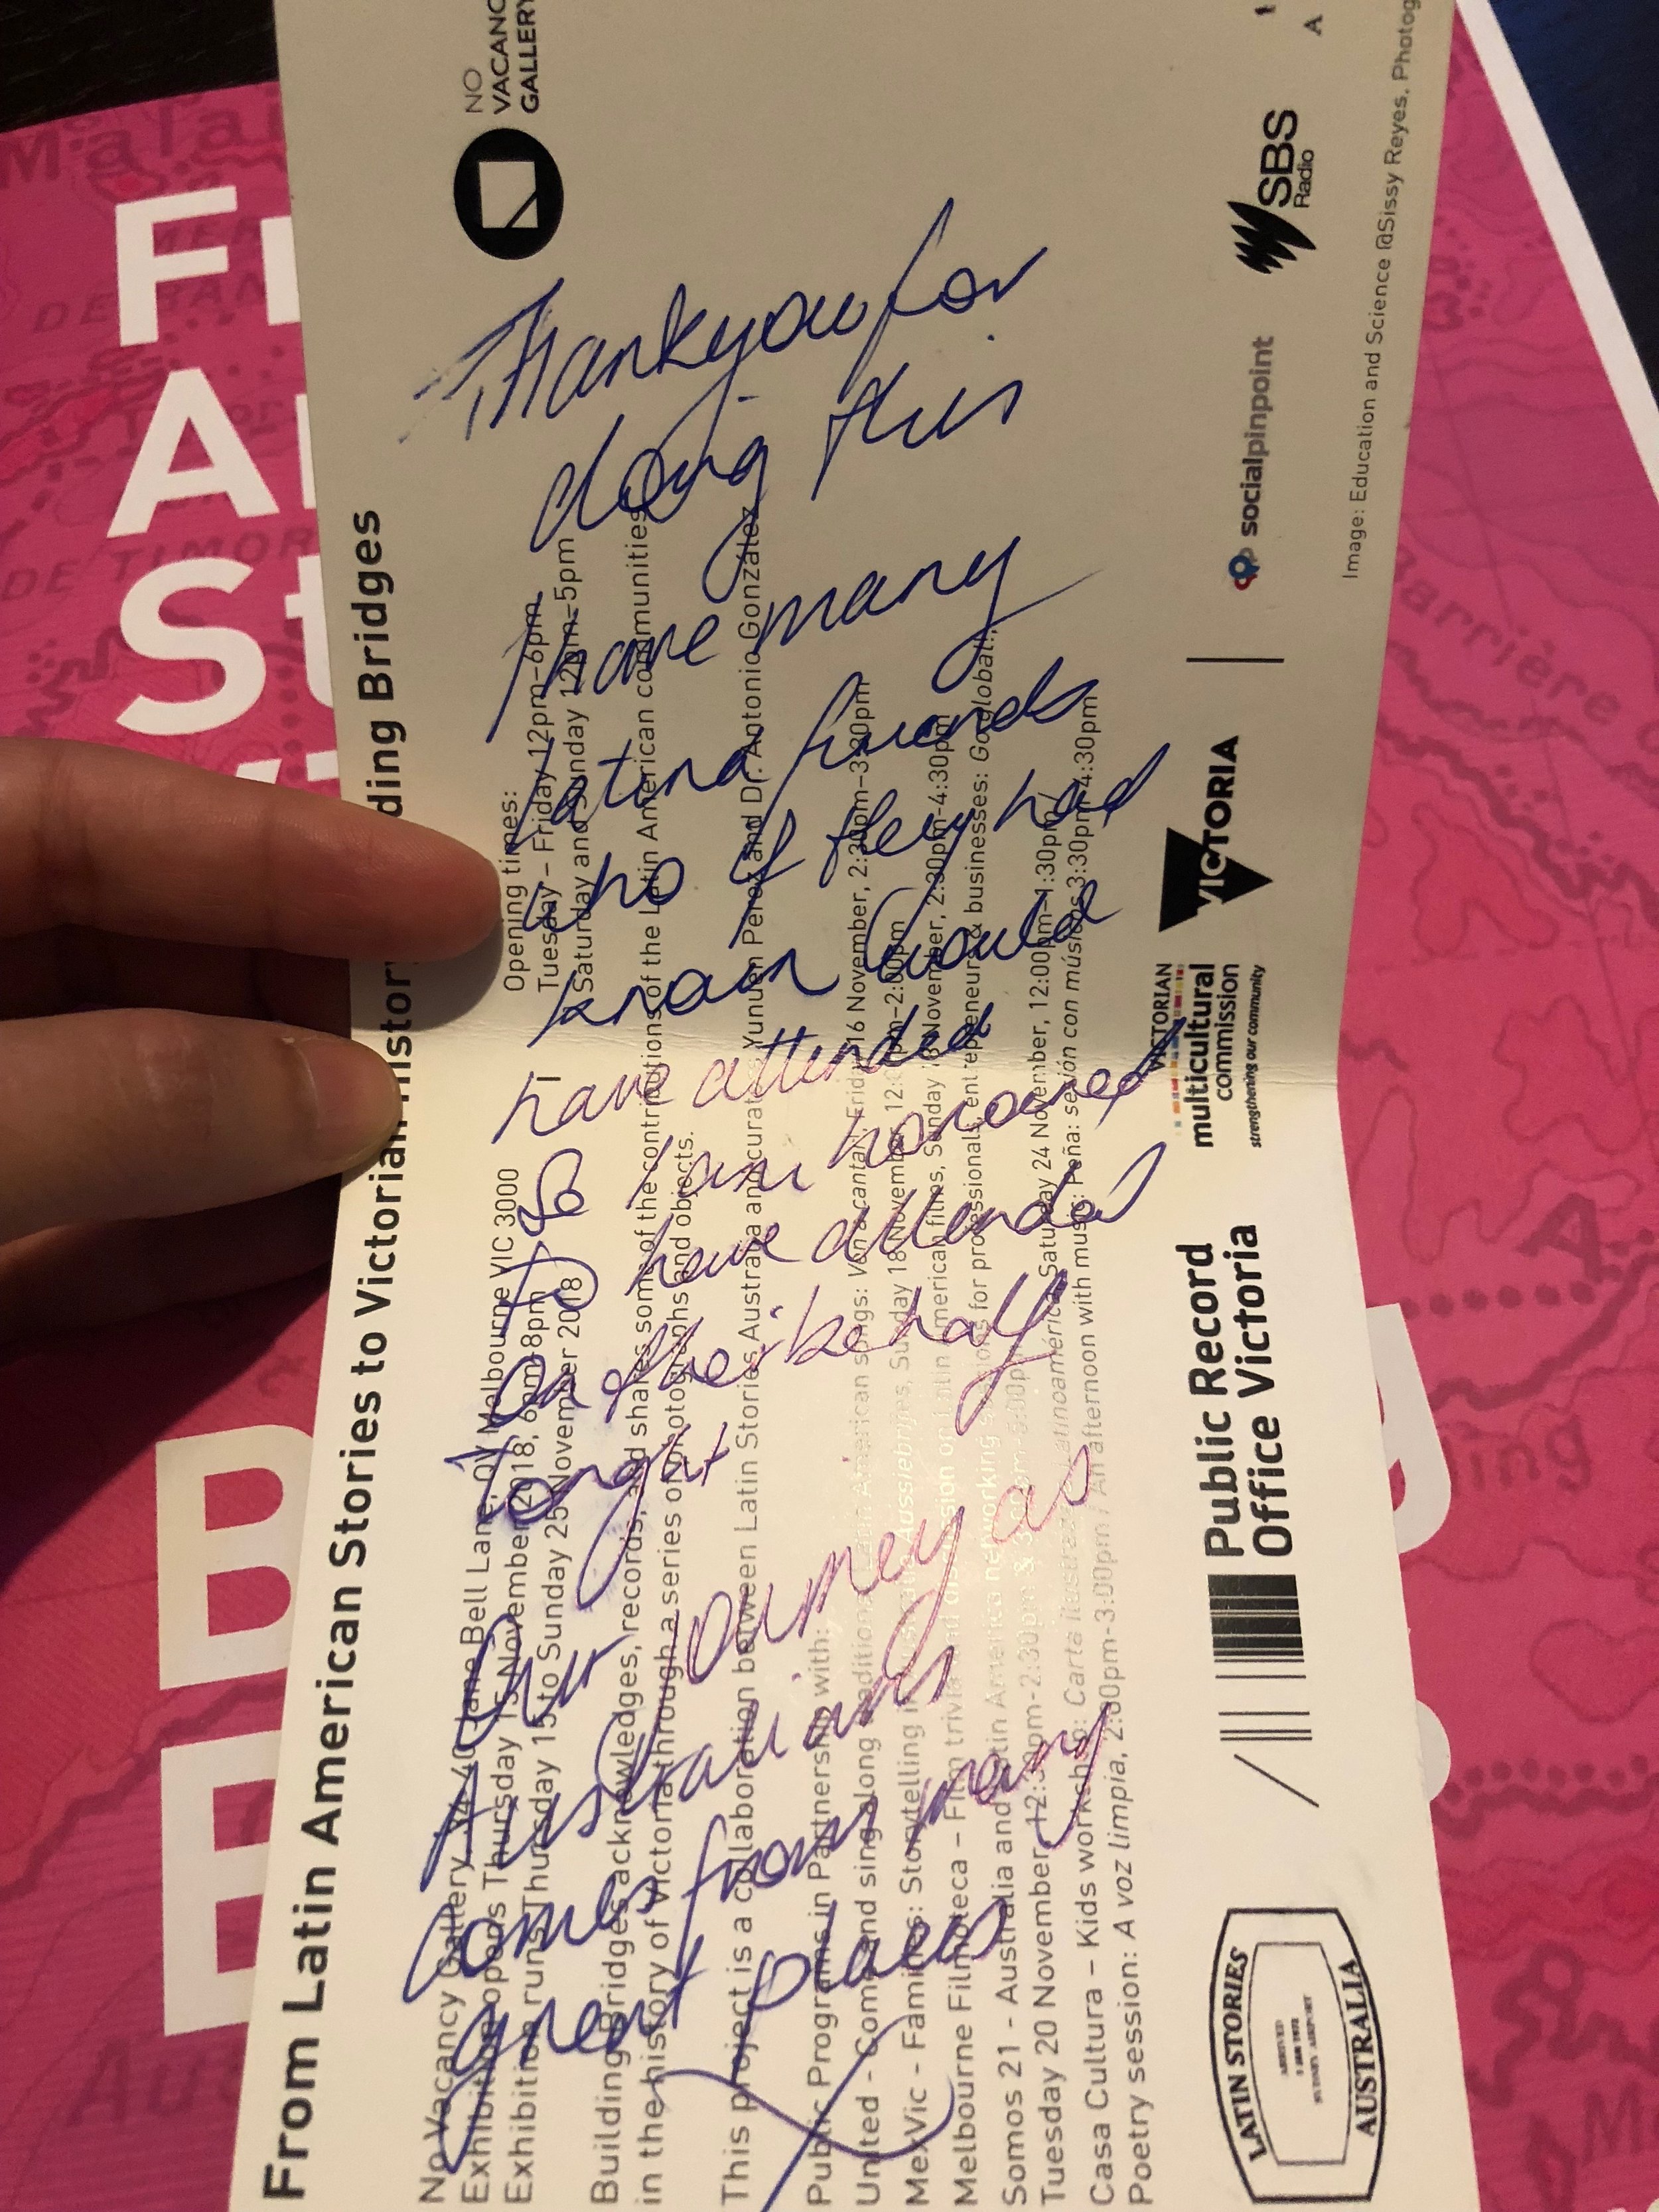 From Latin American Stories to Victorian Histor ding Bridges
No Vacancy Gallery 34-40 Jane Bell Lane, QV Melbourne VIC 3000
Exhibition opens Thursday 15 November 2018, 6pm-8pm
Exhibition runs Thursday 15 to Sunday 25 November 2018
Opening times:
Tuesday – Friday 12pm–6pm
Saturday and Sunday 12pm–5pm
Building Bridges acknowledges, records, and shares some of the contributions of the Latin American communities
in the history of Victoria through a series of photographs and objects.
This project is a collaboration between Latin Stories Australia and curators Yunuen Perez and Dr. Antonio González
Public Programs in Partnership with:
United - Come and sing along traditional Latin American songs: Ven a cantar, Friday 16 November, 2:30pm–3:30pm
MexVic - Families: Storytelling in Australia: Aussiebrijes, Sunday 18 November, 12:00pm–2:00pm
Melbourne Filmoteca – Film trivia and discussion on Latin American films, Sunday 18 November, 2:30pm-4:30pm
Somos 21 - Australia and Latin America networking sessions for professionals, entrepreneurs & businesses: Go global!,
Tuesday 20 November 12:30pm-2:30pm & 3:30pm-5:00pm
Casa Cultura – Kids workshop: Carta ilustrada latinoamérica, Saturday 24 November, 12:00pm–1:30pm
Poetry session: A voz limpia, 2:00pm-3:00pm / An afternoon with music: Peña: sesión con músicos 3:30pm-4:30pm
Thankyou for
doing this
I have many
Latina friends
who if they had
known would
have attended
so I am honoured
to have attended
on their behalf
tonight
Our journey as
Australians
comes from many
great places
NO
VACANC
GALLERY
LATIN STORIES
ARRIVED
SYDNEY AIRPORT
AUSTRALIA
Public Record
Office Victoria
VICTORIAN
multicultural
commission
strengthening our community
VICTORIA
socialpinpoint
SBS
Radio
A
Image: Education and Science @Sissy Reyes, Photog
F
A
St
B
B
y
Mala
DE TIMOR
Barrière
ing
A